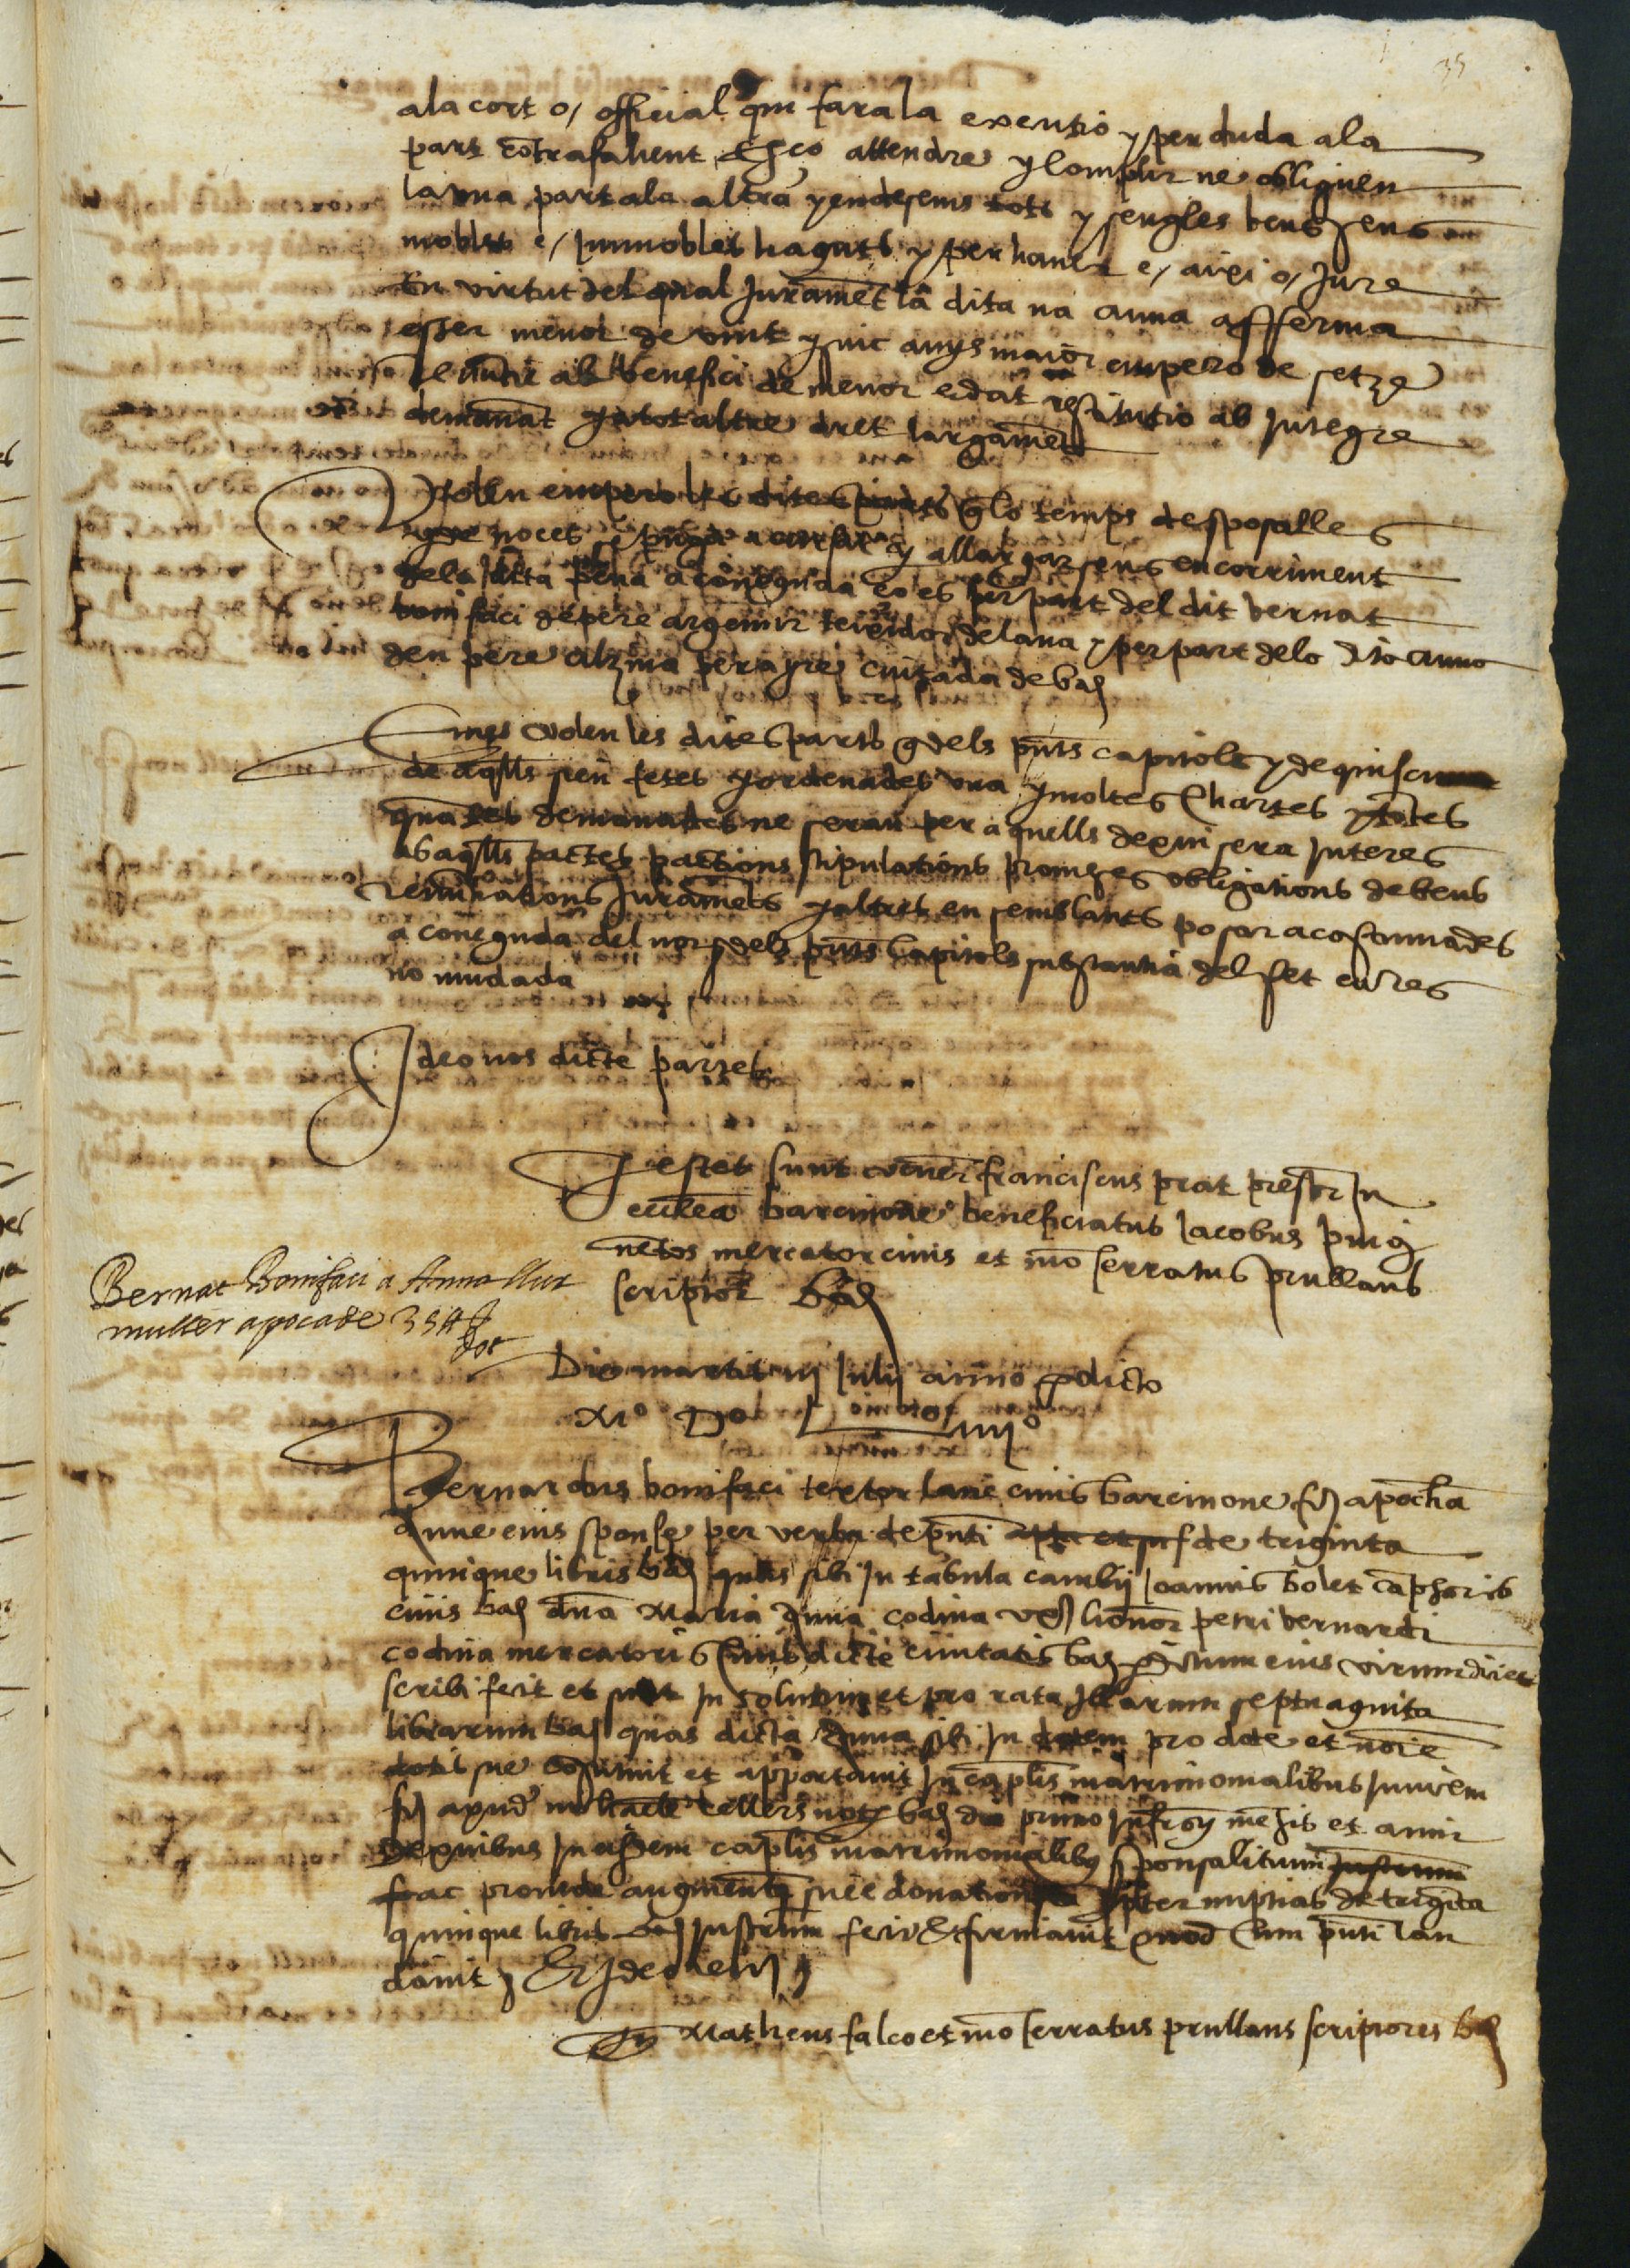 35
ala cort o/ official qui fara la exequtio y perduda ala
part cōtrafahent E aço attendre y complir ne obliguen
la una part ala altra y endesems tots y sengles bens seus
mobles e/ Immobles haguts y per haver e/ axi o/ Jure
En virtut del qual Juramēt la dita na anna afferma
esser menor de vint y sinc anys maior empero de setze
Renūtie al benefici de menor edat restitutio ab Integre
demanāt y a tot altre dret largamēt
Volen empero les dites parts q̄ lo temps de sposalles
noces se puga y allargar sens encorriment
dela dita pena a coneguda ço es per part del dit bernat
bonifaci de pere argemir texidor de lana y per part dela dita anna
den pere alzina perayre ciutada de baȓ
E mes volen les dites parts q̄ dels pn̄ts capitols y de quiscun
de aq̄lls sien fetes y ordenades una y moltes Chartes y totes
quātes demanades ne seran per aquells de qui sera Interes
ab aq̄lls pactes pactions stipulations promeses obligations de bens
renūtiations Juramēts y altres en semblants posar acostumades
a coneguda del noȓ dels pn̄ts Capitols substantia del fet en res
no mudada
Ideo nos dicte partes
Testes sunt veneȓ franciscus prat presbr̄ In
ecclesia barcinone beneficiatus Jacobus puig
netos mercator civis et mō serratus prullans
scriptor baȓ
Bernat Bonifaci a Anna sua
muller apoca de 35 ₶
dot
Die martis iij Julij anno pōdicto
Mº Dº L iiijº
Bernardus bonifaci textor lane civis barcinone f̄ apocha
Anne eius sponse per verba de pn̄ti de triginta
quinque libris baȓ quas sibi In tabula cambij Joannis bolet cāpsoris
civis baȓ dn̄a Maria Anna codina uxȓ honoȓ petri bernardi
codina mercatoris civis dicte civitatis baȓ p̄ dictum eius virum dici et
scribi fecit et sunt In solutum et pro rata Illarum septuaginta
librarum baȓ quas dicta Anna sibi In dotem pro dote et noīe
dotis sue cōstituit et apportavit In cāplis matrimonialibus Inivrem
f̄ apud not baȓ die primo Infrōȓ mēsis et anni
De quibus In eisdem caplis matrimonialibȝ sponsalitium
ac proinde augmentū suē donationē propter nuptias de trigīta
quinque libris baȓ Instrum̄ fecit et firmavit quod cum pn̄ti lau
davit Et Ideo renȓ
Ts̄ Matheus falco et mō serratus prullans scriptores baȓ